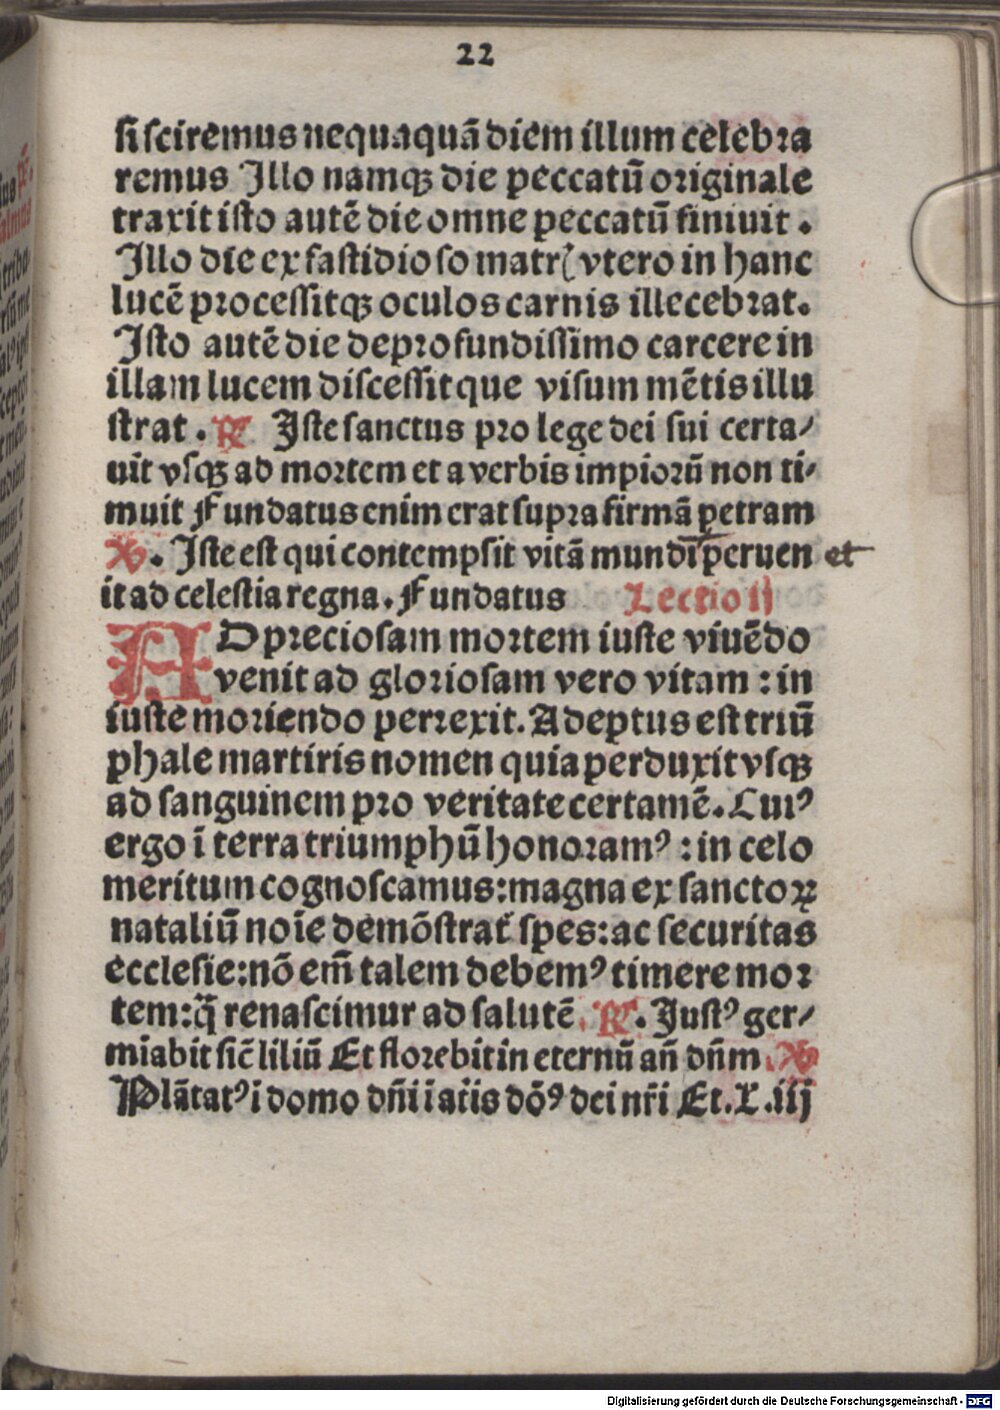 22
si sciremus nequaquā diem illum celebra
remus Illo namqꝫ die peccatū originale
traxit isto autē die omne peccatū finiuit .
Illo die ex fastidioso matrꝭ vtero in hanc
lucē processitqꝫ oculos carnis illecebrat.
Isto autē die de profundissimo carcere in
illam lucem discessitque visum mētis illu
strat . ℟ Iste sanctus pro lege dei sui certa/
uit vsqꝫ ad mortem et a verbis impiorū non ti/
muit Fundatus enim erat supra firmā petram
℣. Iste est qui contempsit vitā mundi ꝑeruen et
it ad celestia regna. Fundatus Lectio ij
AD preciosam mortem iuste viuēdo
venit ad gloriosam vero vitam : in
iuste moriendo perrexit. Adeptus est triū
phale martiris nomen quia perduxit vsqꝫ
ad sanguinem pro veritate certamē. Cuiꝰ
ergo ī terra triumphū honoramꝰ : in celo
meritum cognoscamus: magna ex sanctoꝝ
nataliū noīe demōstrat᷑ spes: ac securitas
ecclesie: nō em̄ talem debemꝰ timere mor
tem: q̄ renascimur ad salutē. ℟. Iustꝰ ger/
mīabit sic̄ liliū Et florebit in eternū an̄ dn̄m. ℣
Plātatꝰ ī domo dn̄i ī at̄iis dōꝰ dei nr̄i Et. L. iij
Digitalisierung gefördert durch die Deutsche Forschungsgemeinschaft - DFG